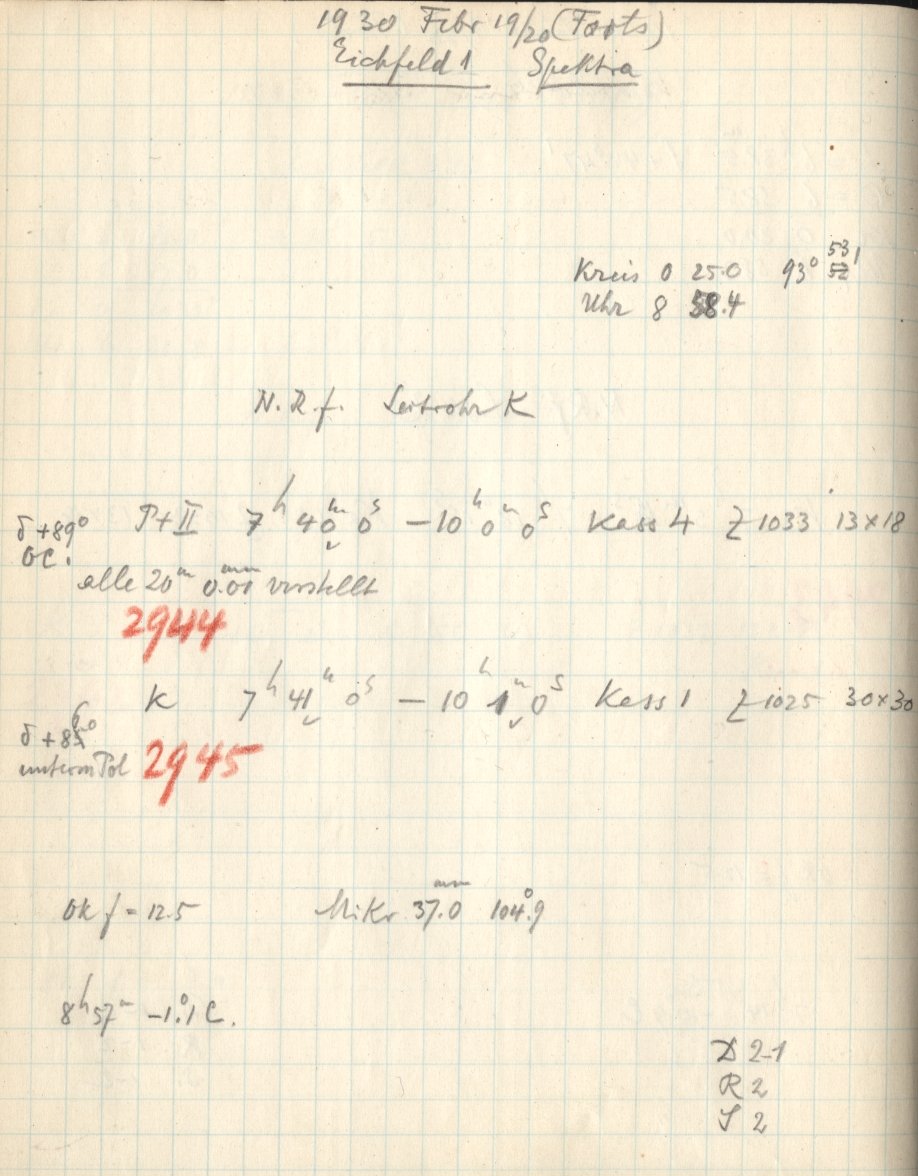 1930 Febr 19/20 (Forts)
Eichfeld 1 Spektra
Kreis 0 25.0 93° 53'
Uhr 8 58.4
N.R.f. Leitrohr K
δ+89° P+II 7h 40m 0s – 10h 0m 0s Kass 4 Z 1033 13×18
OC.
alle 20m 0.01mm verstellt
2944
K 7h 41m 0s – 10h 1m 0s Kass 1 Z 1025 30×30
unterm Pol 2945
Ok f = 12.5 Mikr 37.0mm 104°.9
8h 57m –1°.1 C.
D 2-1
R 2
S 2